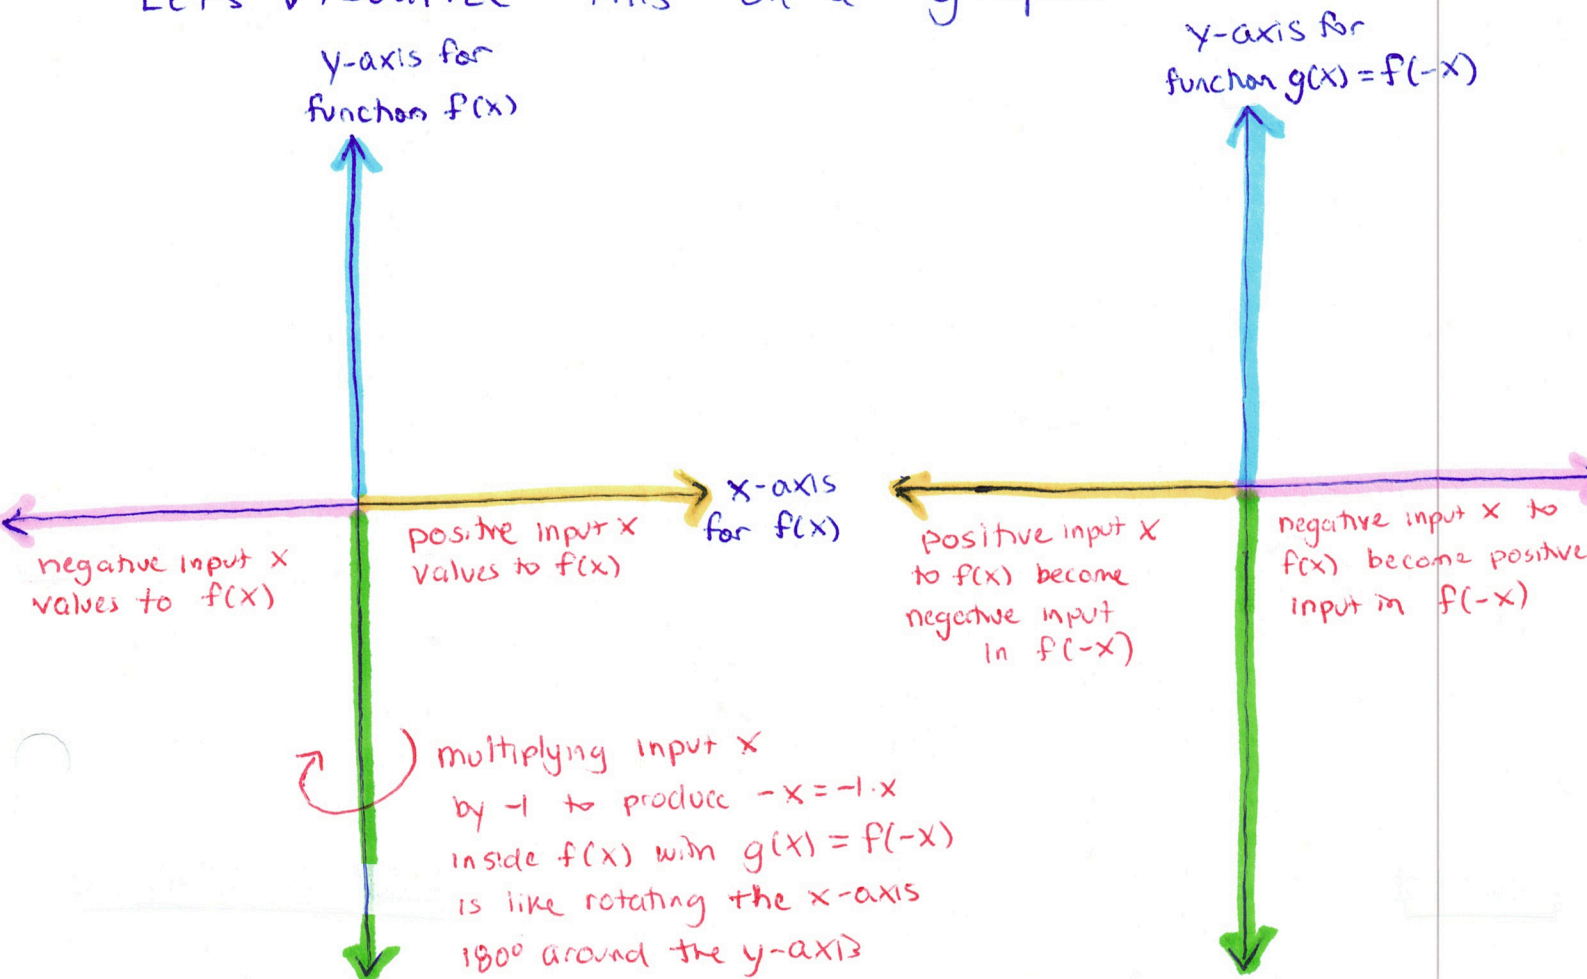 Let's visualize this on a graph
y-axis for
function f(x)
y-axis for
function g(x) = f(-x)
x-axis
for f(x)
negative input x
values to f(x)
positive input x
values to f(x)
positive input x
to f(x) become
negative input
in f(-x)
negative input x to
f(x) become positive
input in f(-x)
multiplying input x
by -1 to produce -x = -1·x
inside f(x) with g(x) = f(-x)
is like rotating the x-axis
180° around the y-axis